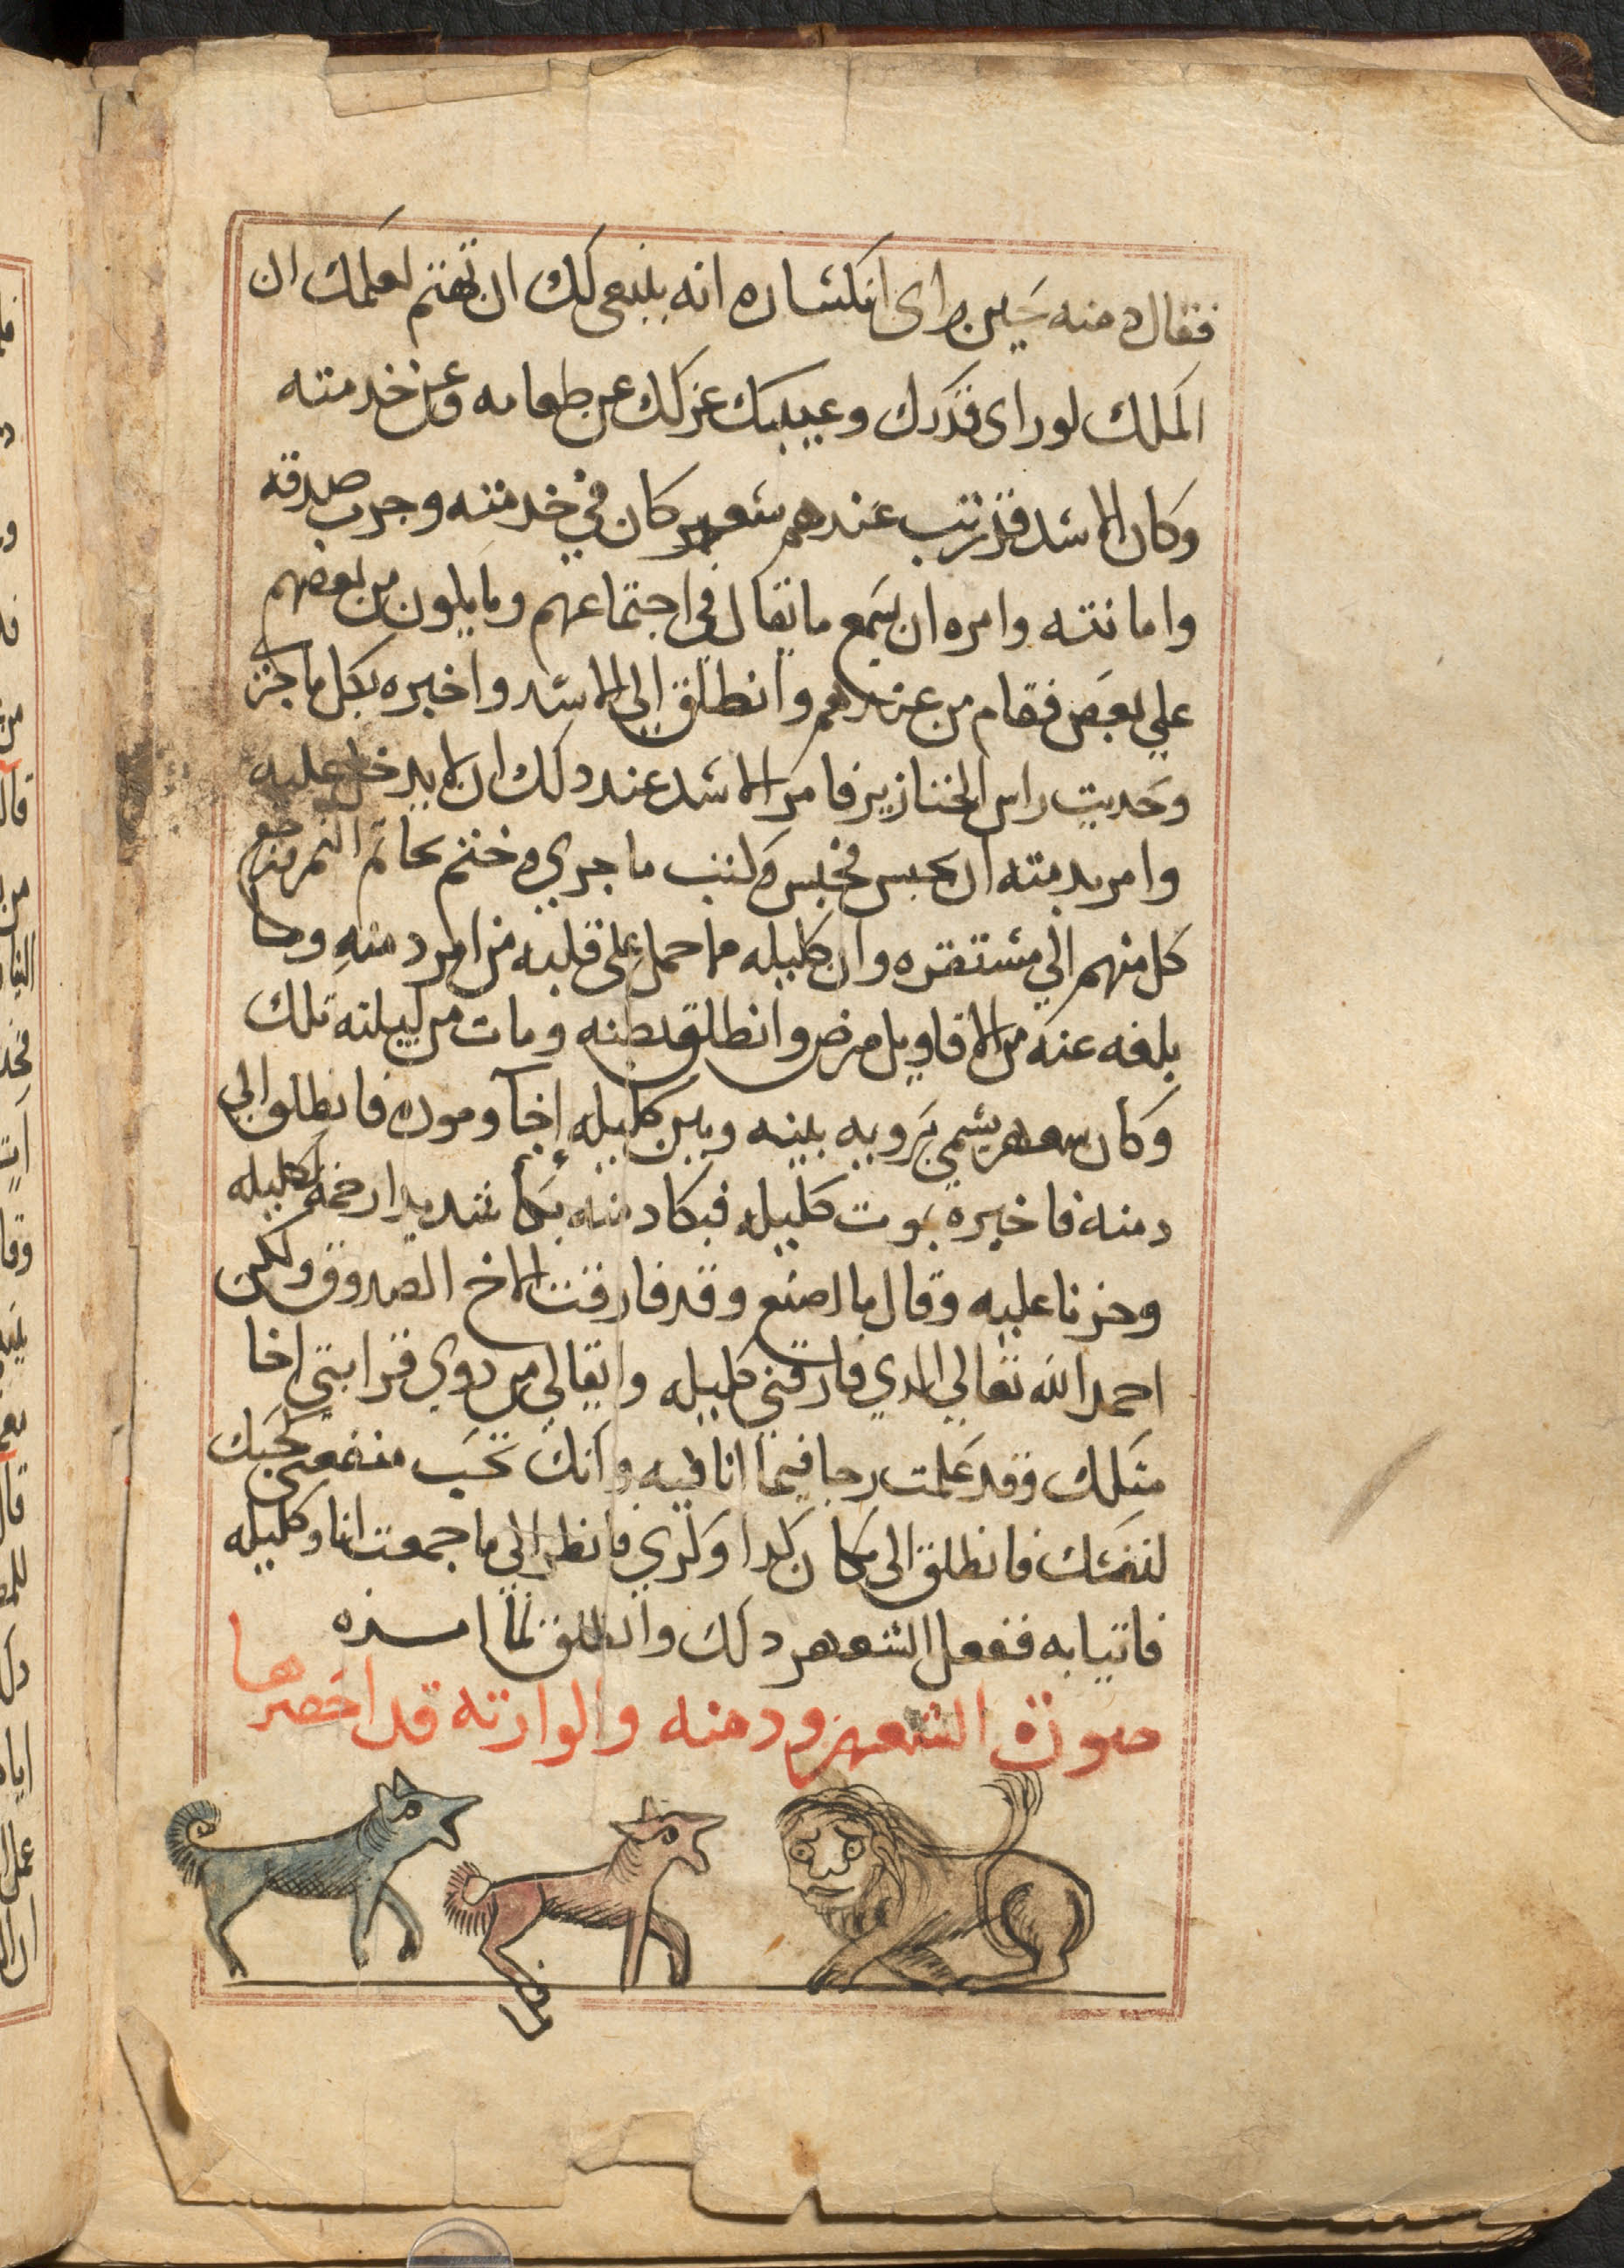 فقال دمنه حين راى انكشاره انه ينبغي لك ان تهتم لعلمك ان
الملك لو راى قذرك وعيبك عزلك عن طعامه وعن خدمته
وكان الاسد قد رتب عندهم شعهر كان في خدمته وجرب صدقه
وامانته وامره ان يسمع ما يقال في اجتماعهم وما يلون من بعضهم
علي بعض فقام من عندهم وانطلق الي الاسد واخبره بكل ما جرى
وحديت راس الخنازير فامر الاسد عند دلك ان لا يدخل عليه
وامر بدمنه ان يحبس فحبس وكتب ما جري وختم بخاتم النمر ورجع
كل منهم الي مستقره وان كليله مما حمل علي قلبه من امر دمنه وما
بلغه عنه من الاقاويل مرض وانطلق بطنه ومات من ليلته تلك
وكان شعهر يسمي بروبه بينه وبين كليله إخآ وموده فانطلق الي
دمنه فاخبره بموت كليله فبكا دمنه بكا شديدا رحمة لكليله
وحزنا عليه وقال ما اصنع وقد فارقت الاخ الصدوق ولكن
احمد الله تعالي الدي فارقني كليله وابقا لي من دوي قرابتي اخا
متلك وقد علمت رجا فيما انا فيه وانك تحب منفعتي كحبك
لنفسك فانطلق الى مكان كدا وكدي فانظر الي ما جمعت انا وكليله
فاتيا به ففعل الشعهر دلك وانطلق لما امره
صورة الشعهر ودمنه والوارته قد احضرها